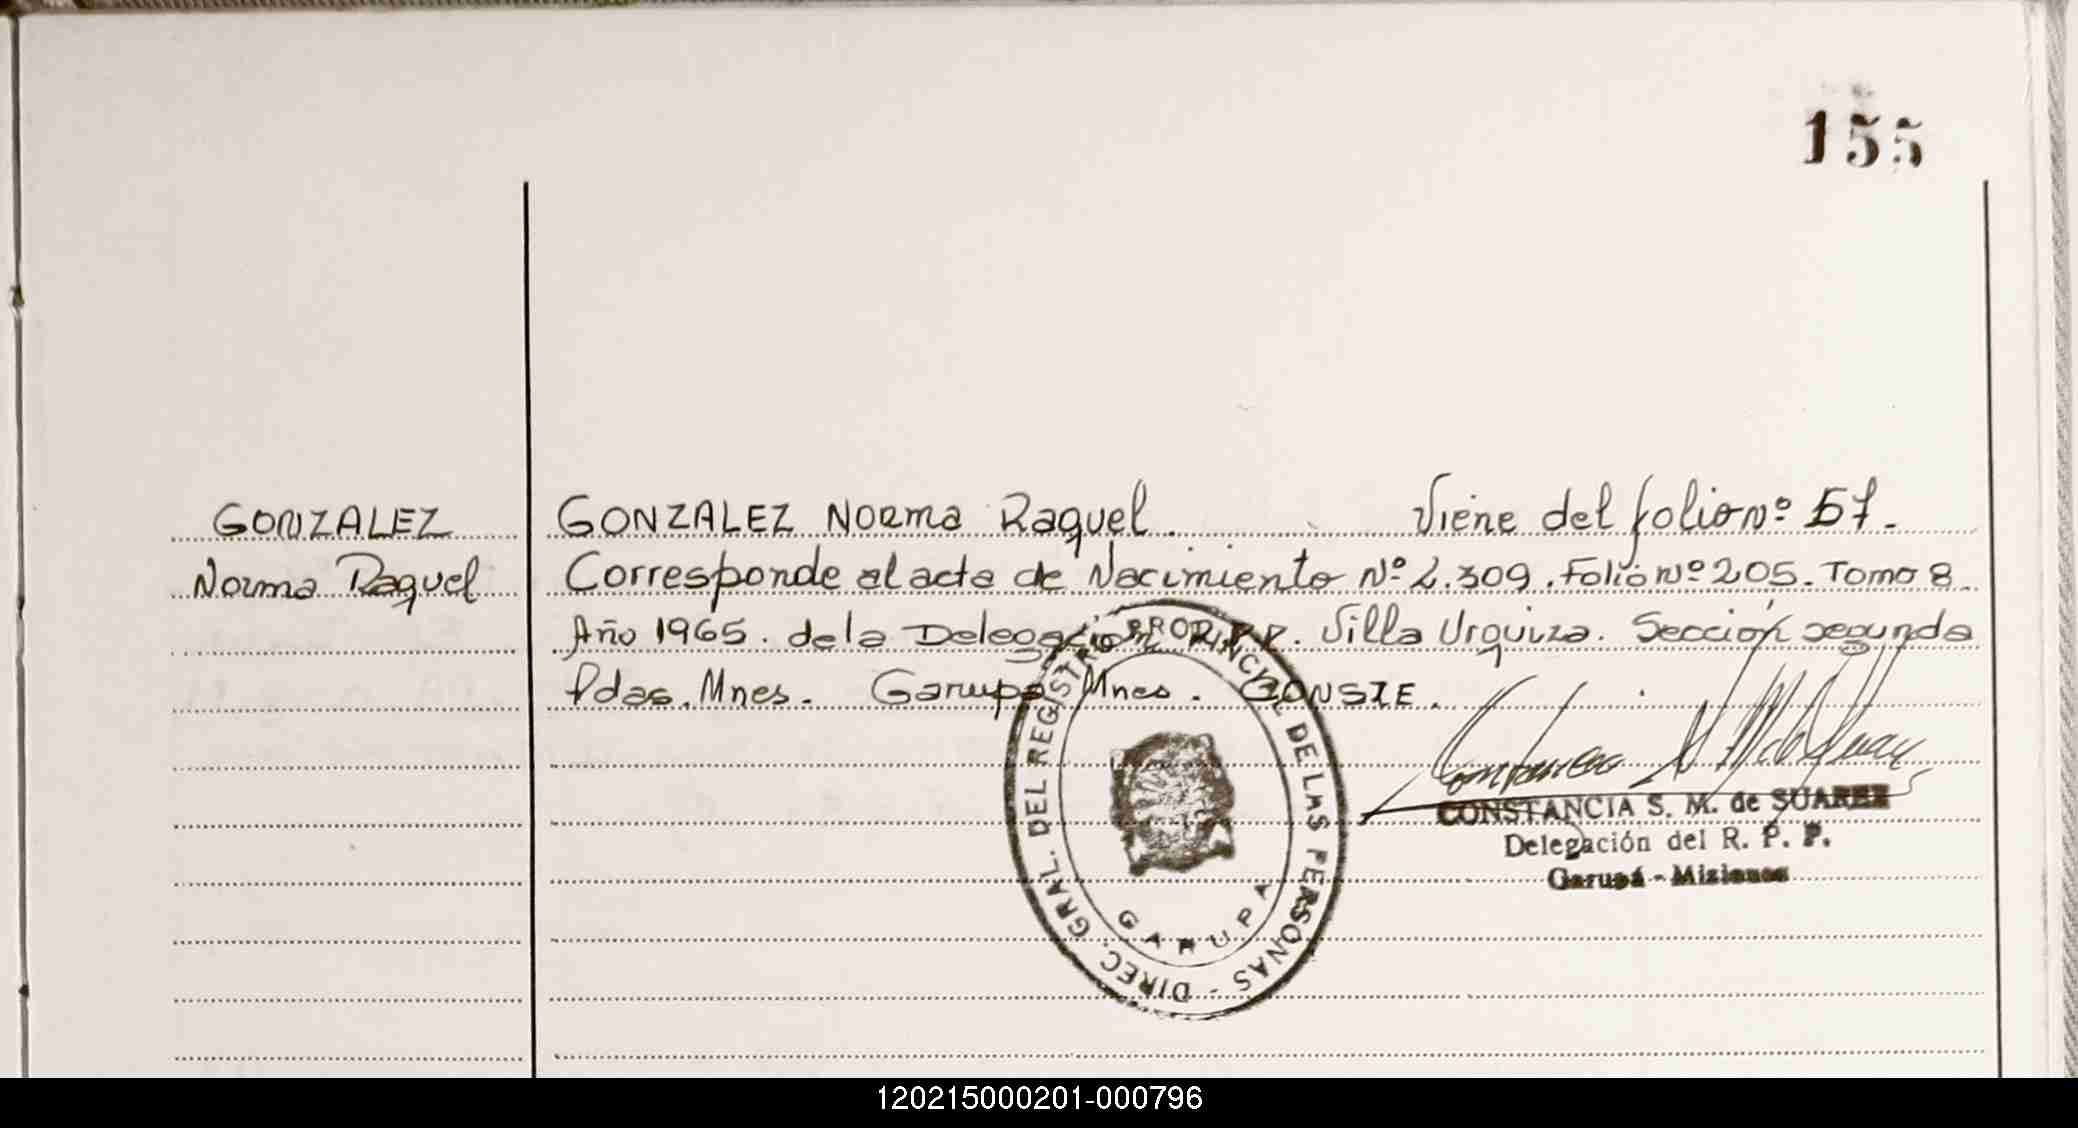 155
GONZALEZ
Norma Raquel
GONZALEZ Norma Raquel. Viene del folio nº 57.
Corresponde al acta de Nacimiento Nº 2.309. Folio Nº 205. Tomo 8
Año 1965. de la Delegación R.P.P. Villa Urquiza. Sección segunda
Pdas. Mnes. Garupá Mnes. CONSTE.
DIREC. GRAL. DEL REGISTRO PROVINCIAL DE LAS PERSONAS -
GARUPA
CONSTANCIA S. M. de SUAREZ
Delegación del R. P. P.
Garupá - Misiones
120215000201-000796